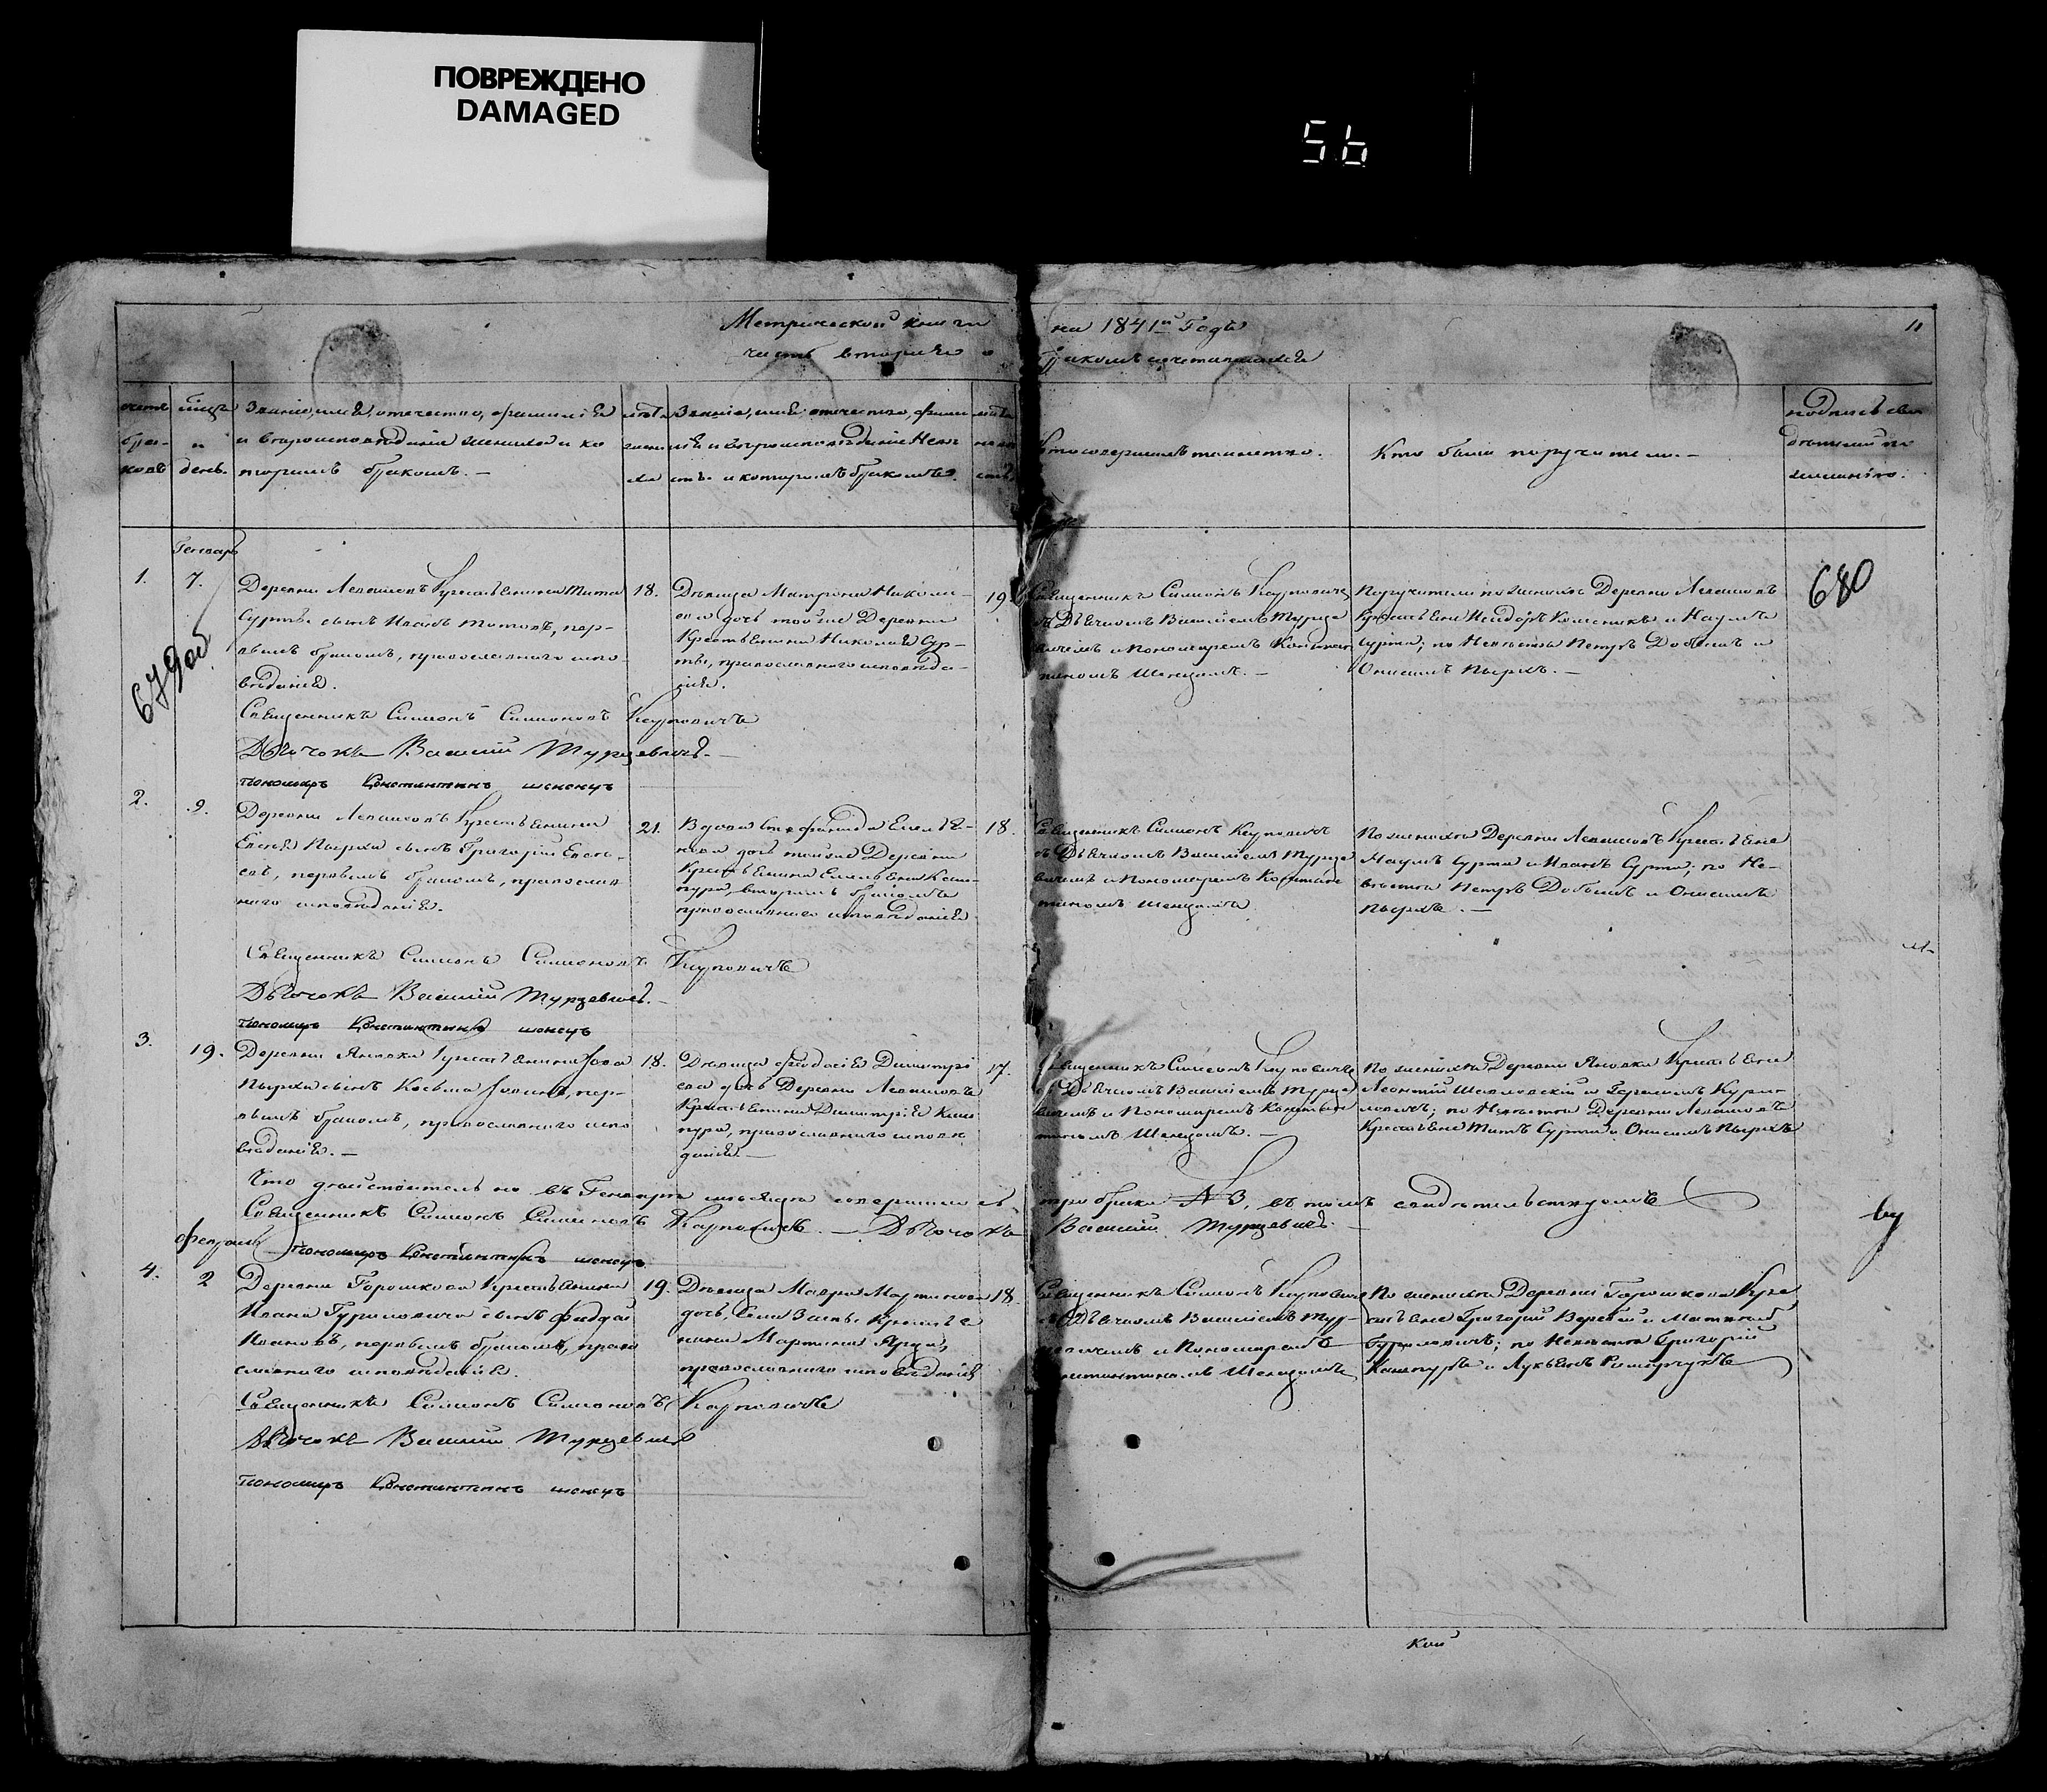 ПОВРЕЖДЕНО
DAMAGED
56
Метрической книги на 1841й Годъ
часть вторая о бракомъ сочетавшихся
11
счетъ браковъ
мѣсяцъ и день.
Званіе, имя, отечество, фамилія
и вѣроисповѣданіе жениха и ко
торымъ бракомъ. —
лѣта жениха
Званіе, имя, отечество, фами
лія и вѣроисповѣданіе Невѣ
сты и которымъ бракомъ.
лѣта невѣсты
Кто совершалъ таинство.
Кто были поручители. —
подпись сви
дѣтелей по
желанію.
Генварь
1.
7.
679об
Деревни Левашовъ Крестьянина Тита
Сурты сынъ Иванъ Титовъ, пер-
вымъ бракомъ, православнаго испо-
вѣданія.
18.
Дѣвица Матрона Никола-
ева дочь тойже Деревни
Крестьянина Николая Сур-
ты, православнаго исповѣда-
нія.
19
Священникъ Симеонъ Карповичъ
съ Дьячкомъ Василіемъ Турце
вичемъ и Пономаремъ Констан
тиномъ Шенецомъ. —
Поручители по женихѣ Деревни Левашовъ
Крестьяне Исидоръ Колесникъ и Наумъ
Сурта; по Невѣстѣ Петръ Добышъ и
Онисимъ Пырхъ. —
680
Священникъ Симеонъ Симеоновъ Карповичъ
Дьячокъ Василій Турцевичъ. —
пономаръ Константинъ шенецъ
2.
9.
Деревни Левашовъ Крестьянина
Елисея Пырха сынъ Григорій Елисѣ-
евъ, первымъ бракомъ, православ
наго исповѣданія.
21.
Вдова Стефанида Емелья-
нова дочь тойже Деревни
Крестьянина Емельяна Каш-
пура, вторымъ бракомъ
православнаго исповѣданія
18.
Священникъ Симеонъ Карповичъ
съ Дьячкомъ Василіемъ Турце
вичемъ и Пономаремъ Констан
тиномъ Шенецомъ
По женихѣ Деревни Левашовъ Крестьяне
Наумъ Сурта и Иванъ Сурта; по Не-
вѣстѣ Петръ Добышъ и Онисимъ
Пырхъ. —
Священникъ Симеонъ Симеоновъ Карповичъ
Дьячокъ Василій Турцевичъ. —
пономаръ Константинъ шенецъ
3.
19.
Деревни Яновки Крестьянина Іова
Пырха сынъ Косьма Іовинъ, пер-
вымъ бракомъ, православнаго испо
вѣданія. —
18.
Дѣвица Феодосія Димитрі
ева дочь Деревни Левашовъ
Крестьянина Димитрія Каш
пура, православнаго исповѣ
данія. —
17.
Священникъ Симеонъ Карповичъ
съ Дьячкомъ Василіемъ Турце
вичемъ и Пономаремъ Констан
тиномъ Шенецомъ. —
По женихѣ Деревни Яновки Крестьяне
Леонтій и Герасимъ
по Невѣстѣ Деревни Левашовъ
Крестьяне Титъ Сурта и Онисимъ Пырхъ
Что дѣйствительно въ Генварѣ мѣсяцѣ совершились три брака № 3, въ томъ свидѣтельствуемъ
Священникъ Симеонъ Симеоновъ Карповичъ. — Дьячокъ Василій Турцевичъ. —
пономаръ Константинъ шенецъ
Февраль
4.
2
Деревни Горошкова Крестьянина
Ивана Гуриновича сынъ Фаддей
Ивановъ, первымъ бракомъ, право
славнаго исповѣданія.
19.
Дѣвица Мавра Мартинова
дочь, Села Крестья
нина Мартина
православнаго исповѣданія
18.
Священникъ Симеонъ Карповичъ
съ Дьячкомъ Василіемъ Тур-
цевичемъ и Пономаремъ
Константиномъ Шенецомъ
По женихѣ Деревни Горошкова Кре
стьяне Григорій и Матвей
Гуриновичъ; по Невѣстѣ Григорій
Кашпуръ и Лукьянъ Рамарчукъ
Священникъ Симеонъ Симеоновъ Карповичъ
Дьячокъ Василій Турцевичъ
пономаръ Константинъ шенецъ